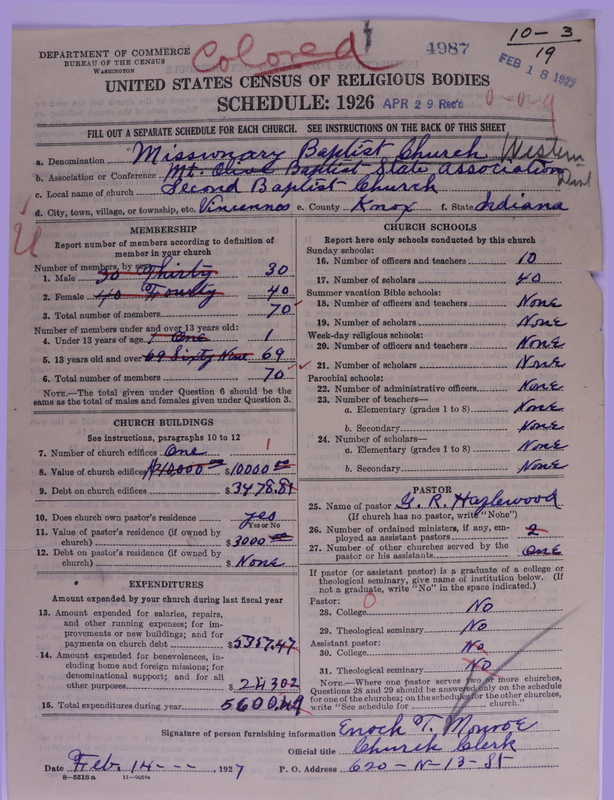 Colored
4987
10-3
19
FEB 18 1927
DEPARTMENT OF COMMERCE
BUREAU OF THE CENSUS
WASHINGTON
UNITED STATES CENSUS OF RELIGIOUS BODIES
SCHEDULE: 1926 APR 29 Rec'd
FILL OUT A SEPARATE SCHEDULE FOR EACH CHURCH. SEE INSTRUCTIONS ON THE BACK OF THIS SHEET
a. Denomination Missionary Baptist Church Western
b. Association or Conference Mt. Olive Baptist State Association Dist
c. Local name of church Second Baptist Church
d. City, town, village, or township, etc. Vincennes e. County Knox f. State Indiana
MEMBERSHIP
Report number of members according to definition of
member in your church
Number of members, by sex:
1. Male 30 Thirty 30
2. Female 40 Fourty 40
3. Total number of members 70
Number of members under and over 13 years old:
4. Under 13 years of age 1 One 1
5. 13 years old and over 69 Sixty Nine 69
6. Total number of members 70
NOTE.—The total given under Question 6 should be the
same as the total of males and females given under Question 3.
CHURCH BUILDINGS
See instructions, paragraphs 10 to 12
7. Number of church edifices One 1
8. Value of church edifices $10,000 00 $10000 00
9. Debt on church edifices $3478.81
10. Does church own pastor's residence yes
Yes or No
11. Value of pastor's residence (if owned by
church) $3000 00
12. Debt on pastor's residence (if owned by
church) $None
EXPENDITURES
Amount expended by your church during last fiscal year
13. Amount expended for salaries, repairs,
and other running expenses; for im-
provements or new buildings; and for
payments on church debt $5357.47
14. Amount expended for benevolences, in-
cluding home and foreign missions; for
denominational support; and for all
other purposes $243.02
15. Total expenditures during year 5600.49
CHURCH SCHOOLS
Report here only schools conducted by this church
Sunday schools:
16. Number of officers and teachers 10
17. Number of scholars 40
Summer vacation Bible schools:
18. Number of officers and teachers None
19. Number of scholars None
Week-day religious schools:
20. Number of officers and teachers None
21. Number of scholars None
Parochial schools:
22. Number of administrative officers None
23. Number of teachers—
a. Elementary (grades 1 to 8) None
b. Secondary None
24. Number of scholars—
a. Elementary (grades 1 to 8) None
b. Secondary None
PASTOR
25. Name of pastor G. R. Haplewood
(If church has no pastor, write "None")
26. Number of ordained ministers, if any, em-
ployed as assistant pastors 2
27. Number of other churches served by the
pastor or his assistants One
If pastor (or assistant pastor) is a graduate of a college or
theological seminary, give name of institution below. (If
not a graduate, write "No" in the space indicated.)
Pastor: 0
28. College No
29. Theological seminary No
Assistant pastor:
30. College No
31. Theological seminary No
NOTE.—Where one pastor serves two or more churches,
Questions 28 and 29 should be answered only on the schedule
for one of the churches; on the schedule for the other churches,
write "See schedule for church."
Signature of person furnishing information Enoch T. Monroe
Official title Church Clerk
Date Feb. 14, 1927 P. O. Address 620-N-13-St
8-5518a 11-9054a